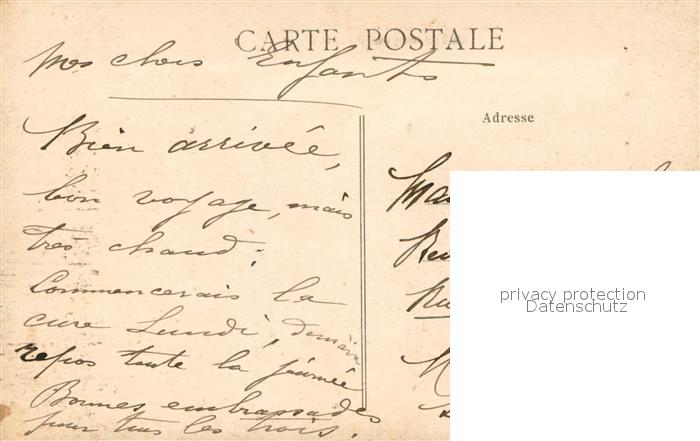 CARTE POSTALE
Mes chers Enfants
Adresse
Bien arrivée,
bon voyage, mais
très chaud;
Commencerais la
cure Lundi, demain
repos toute la journée
Bonnes embrassades
pour tous les trois.
privacy protection
Datenschutz